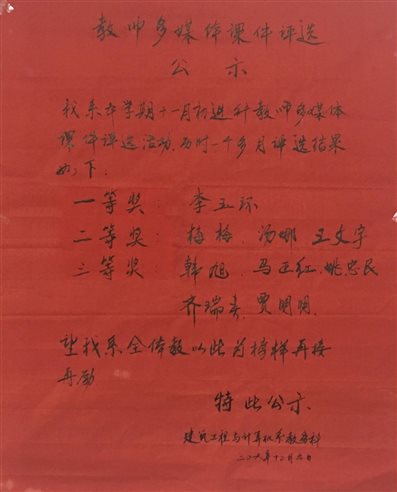 教师多媒体课件评选
公示
我系本学期十一月初进行教师多媒体
课件评选活动，历时一个多月评选结果
如下：
一等奖：李玉环
二等奖：梅梅、汤娜 王文宇
三等奖：韩旭、马正红、姚忠民
齐瑞春、贾明明、
望我系全体教以此为榜样再接
再励
特此公示
建筑工程与计算机系教务科
十二月九日